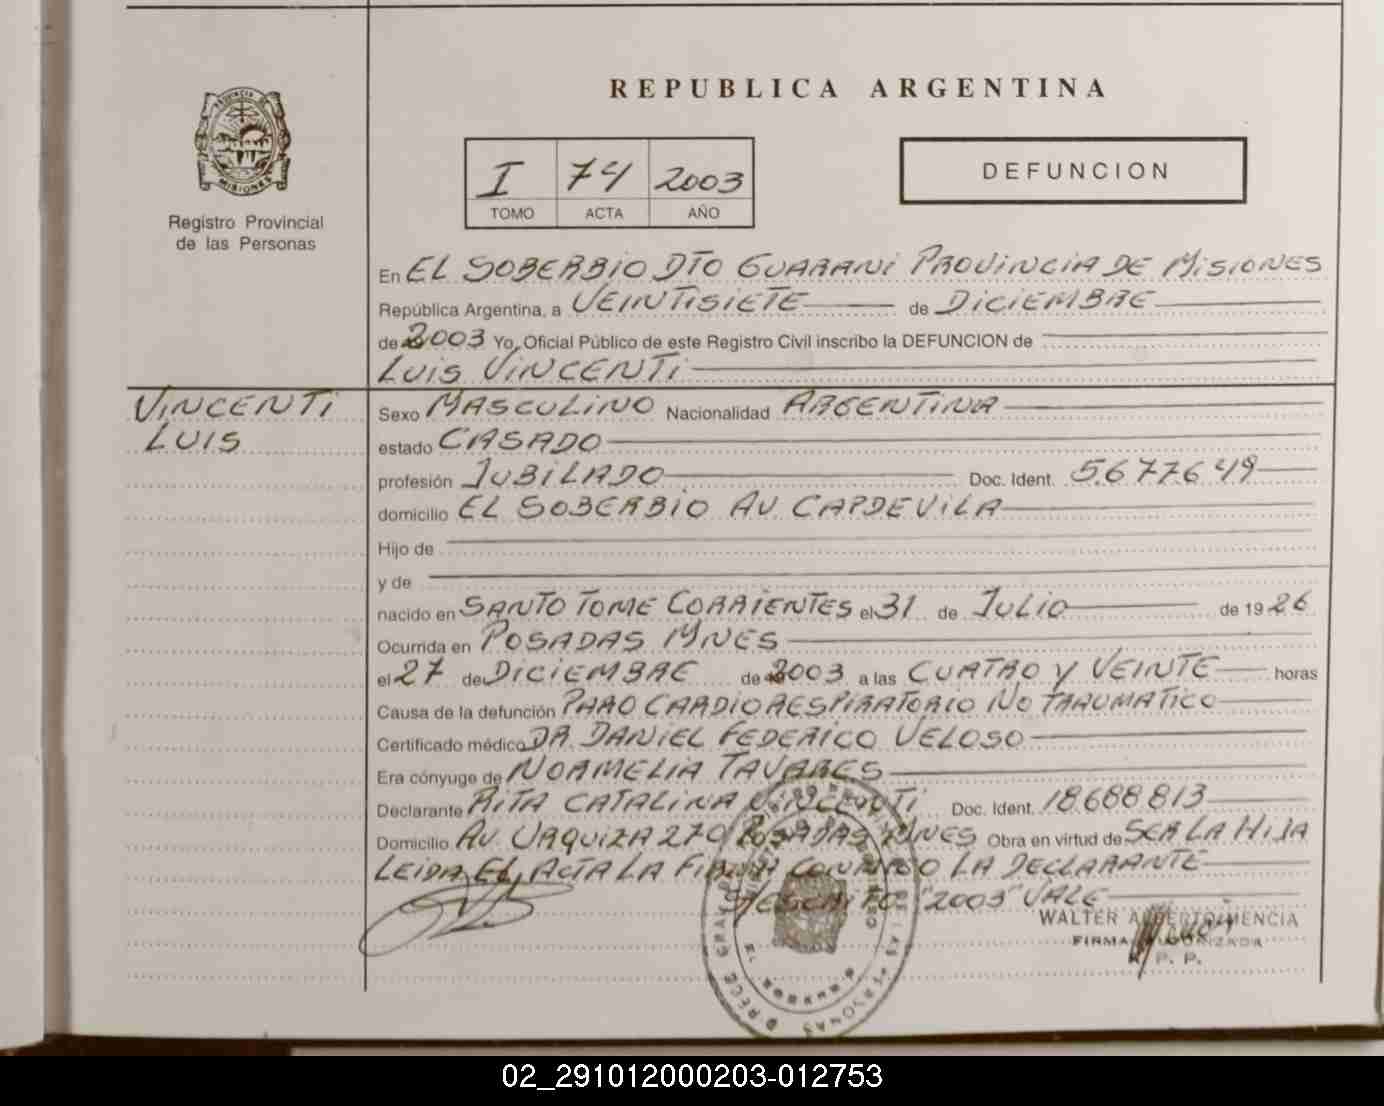 REPUBLICA ARGENTINA
PROVINCIA DE
MISIONES
Registro Provincial
de las Personas
I 74 2003
TOMO ACTA AÑO
DEFUNCION
En EL SOBERBIO DTO GUARANI PROVINCIA DE MISIONES
República Argentina, a VEINTISIETE de DICIEMBRE
de 2003 Yo, Oficial Público de este Registro Civil inscribo la DEFUNCION de
LUIS VINCENTI
VINCENTI
LUIS
Sexo MASCULINO Nacionalidad ARGENTINA
estado CASADO
profesión JUBILADO Doc. Ident. 5.677.649
domicilio EL SOBERBIO AV CAPDEVILA
Hijo de
y de
nacido en SANTO TOME CORRIENTES el 31 de JULIO de 1926
Ocurrida en POSADAS MNES
el 27 de DICIEMBRE de 2003 a las CUATRO Y VEINTE horas
Causa de la defunción PARO CARDIORESPIRATORIO NO TRAUMATICO
Certificado médico DR. DANIEL FEDERICO VELOSO
Era cónyuge de NORMELIA TAVARES
Declarante RITA CATALINA VINCENTI Doc. Ident. 18.688.813
Domicilio AV. URQUIZA 270 POSADAS MNES Obra en virtud de SER LA HIJA
LEIDA EL ACTA LA FIRMA CONMIGO LA DECLARANTE
"2003" VALE
WALTER ALBERTO MENCIA
FIRMA AUTORIZADA
R. P. P.
02_291012000203-012753